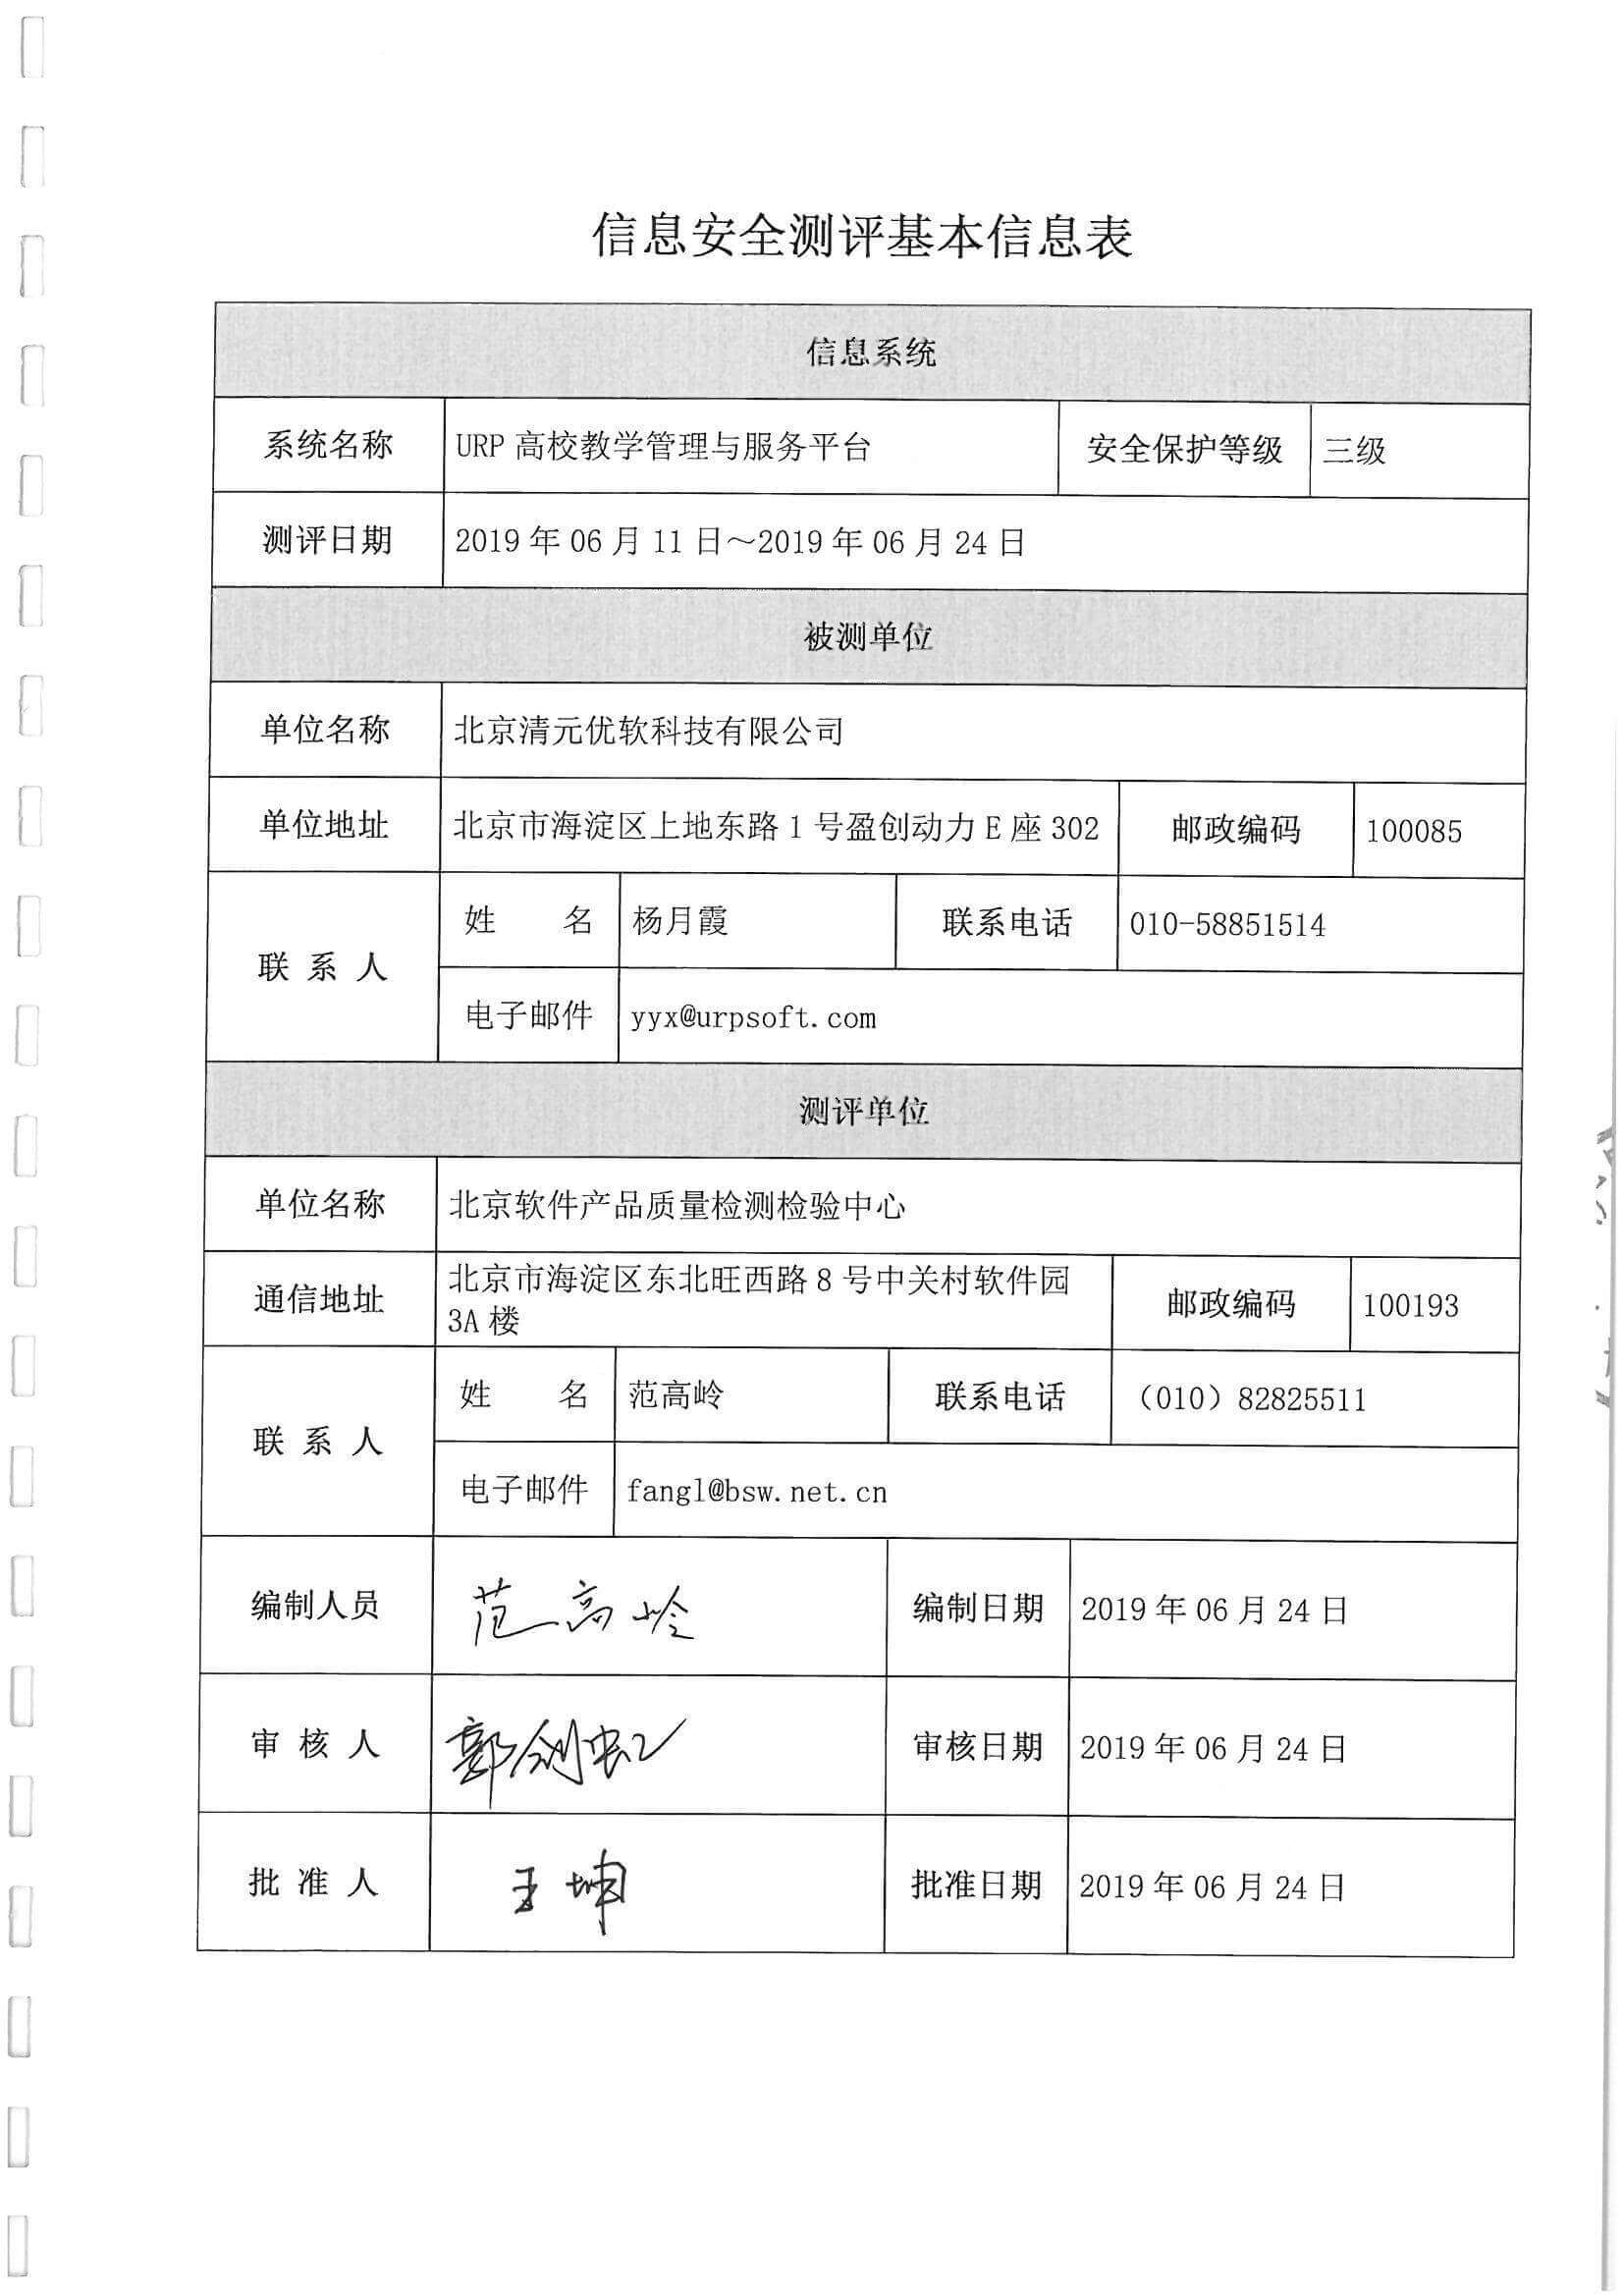 信息安全测评基本信息表
信息系统
系统名称 URP 高校教学管理与服务平台 安全保护等级 三级
测评日期 2019 年 06 月 11 日～2019 年 06 月 24 日
被测单位
单位名称 北京清元优软科技有限公司
单位地址 北京市海淀区上地东路 1 号盈创动力 E 座 302 邮政编码 100085
联 系 人 姓 名 杨月霞 联系电话 010-58851514
电子邮件 yyx@urpsoft.com
测评单位
单位名称 北京软件产品质量检测检验中心
通信地址 北京市海淀区东北旺西路 8 号中关村软件园
3A 楼 邮政编码 100193
联 系 人 姓 名 范高岭 联系电话 （010）82825511
电子邮件 fangl@bsw.net.cn
编制人员 范高岭 编制日期 2019 年 06 月 24 日
审 核 人 郭剑虹 审核日期 2019 年 06 月 24 日
批 准 人 王坤 批准日期 2019 年 06 月 24 日